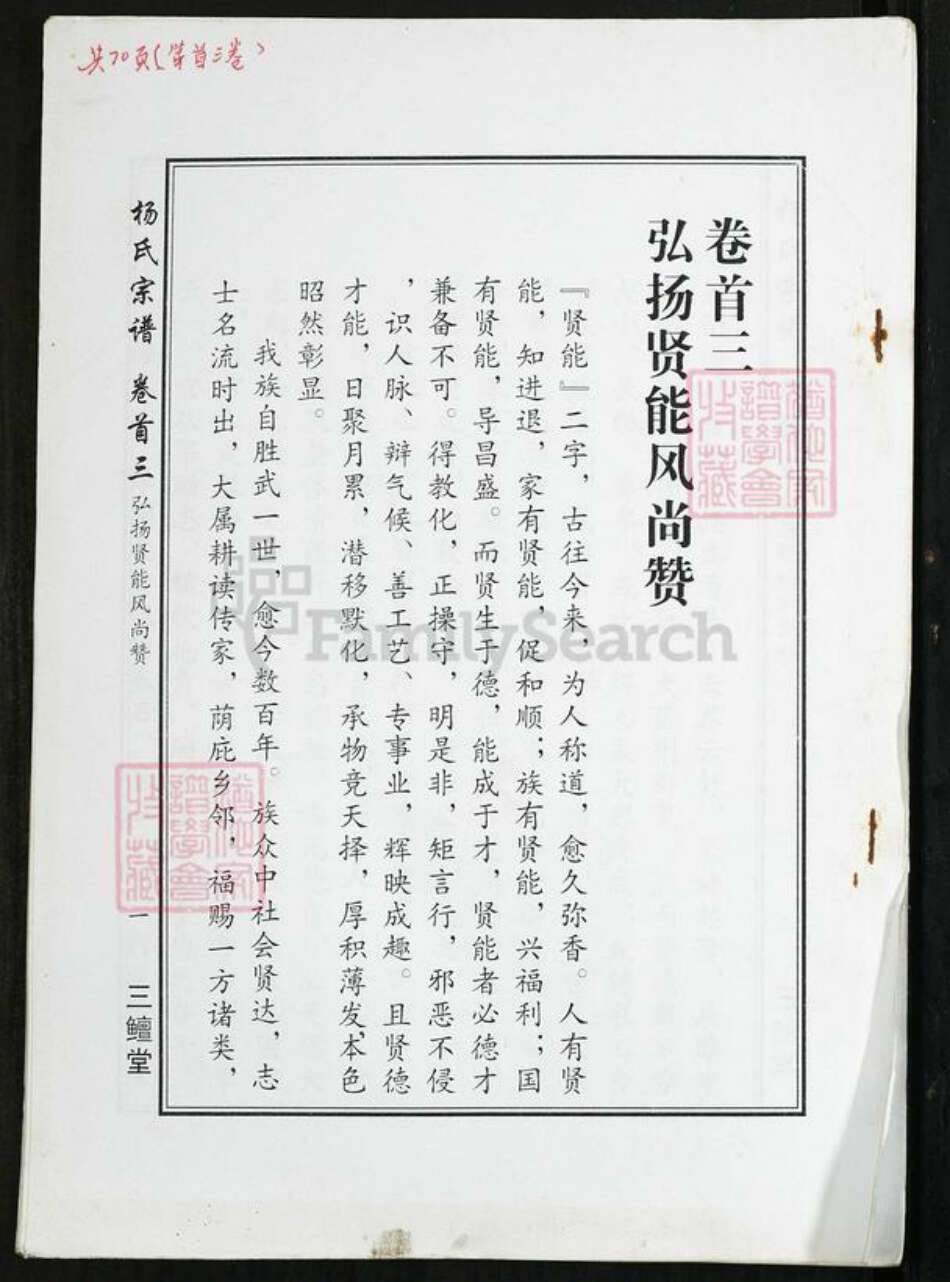 共70页（第首三卷）
卷首三
弘扬贤能风尚赞
『贤能』二字，古往今来，为人称道，愈久弥香。人有贤
能，知进退，家有贤能，促和顺；族有贤能，兴福利；国
有贤能，导昌盛。而贤生于德，能成于才，贤能者必德才
兼备不可。得教化，正操守，明是非，矩言行，邪恶不侵
，识人脉、辩气候、善工艺、专事业，辉映成趣。且贤德
才能，日聚月累，潜移默化，承物竞天择，厚积薄发，本色
昭然彰显。
我族自胜武一世，愈今数百年。族众中社会贤达，志
士名流时出，大属耕读传家，荫庇乡邻，福赐一方诸类，
杨氏宗谱 卷首三 弘扬贤能风尚赞 一 三鳣堂
FamilySearch